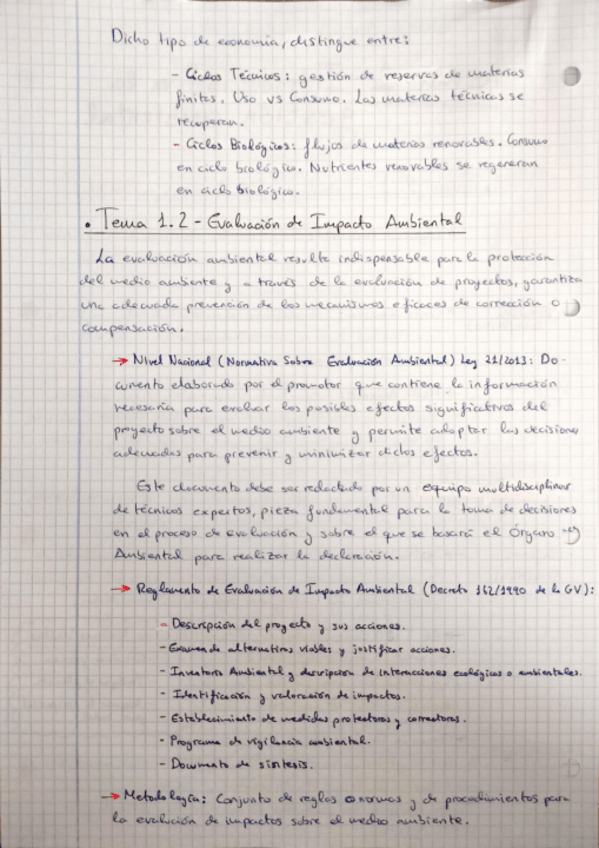 Dicho tipo de economía, distingue entre:
- Ciclos Técnicos: gestión de reservas de materias
finitas. Uso vs Consumo. Las materias técnicas se
recuperan.
- Ciclos Biológicos: flujos de materias renovables. Consumo
en ciclo biológico. Nutrientes renovables se regeneran
en ciclo biológico.
• Tema 1.2 - Evaluación de Impacto Ambiental
La evaluación ambiental resulta indispensable para la protección
del medio ambiente y a través de la evaluación de proyectos, garantiza
una adecuada prevención de los mecanismos eficaces de corrección o
compensación.
→ Nivel Nacional (Normativa Sobre Evaluación Ambiental) Ley 21/2013: Do-
cumento elaborado por el promotor que contiene la información
necesaria para evaluar los posibles efectos significativos del
proyecto sobre el medio ambiente y permite adoptar las decisiones
adecuadas para prevenir y minimizar dichos efectos.
Este documento debe ser redactado por un equipo multidisciplinar
de técnicos expertos, pieza fundamental para la toma de decisiones
en el proceso de evaluación y sobre el que se basará el Órgano
Ambiental para realizar la declaración.
→ Reglamento de Evaluación de Impacto Ambiental (Decreto 162/1990 de la GV):
- Descripción del proyecto y sus acciones.
- Examen de alternativas viables y justificar acciones.
- Inventario Ambiental y descripción de interacciones ecológicas o ambientales.
- Identificación y valoración de impactos.
- Establecimiento de medidas protectoras y correctoras.
- Programa de vigilancia ambiental.
- Documento de síntesis.
→ Metodología: Conjunto de reglas o normas y de procedimientos para
la evaluación de impactos sobre el medio ambiente.